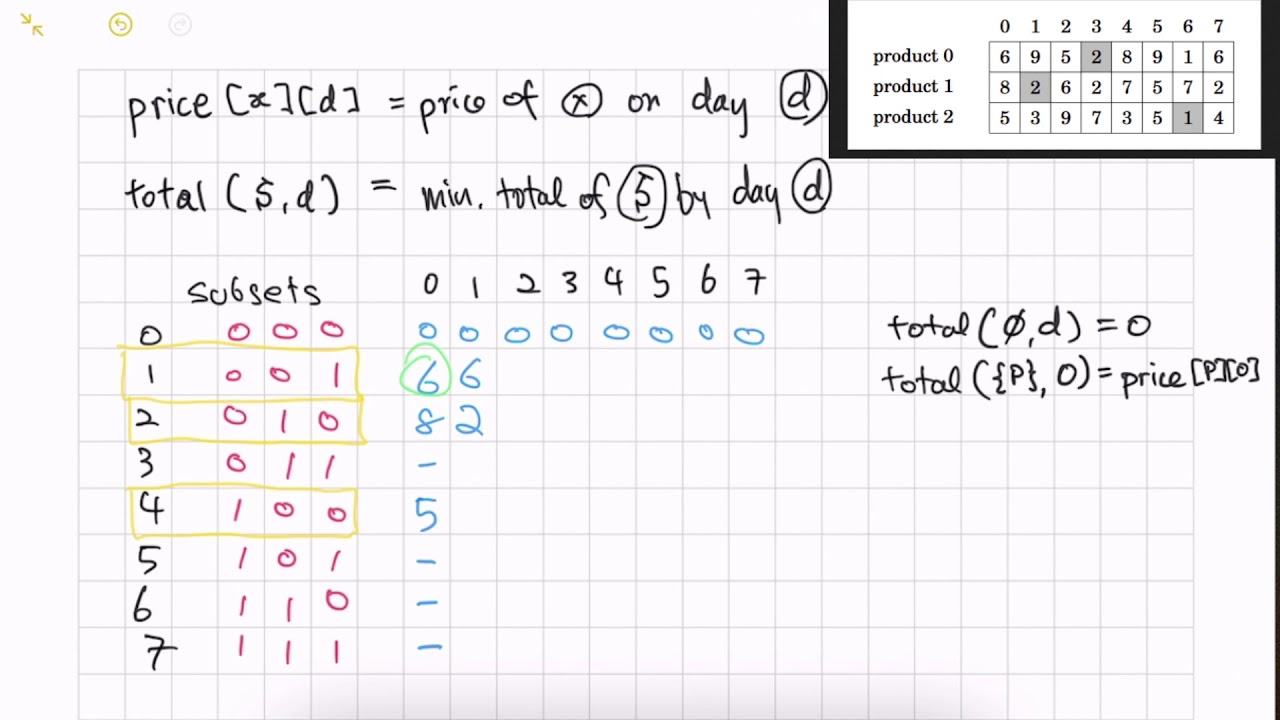 0 1 2 3 4 5 6 7
product 0 6 9 5 2 8 9 1 6
product 1 8 2 6 2 7 5 7 2
product 2 5 3 9 7 3 5 1 4
price [x][d] = price of x on day d
total (S, d) = min. total of S by day d
subsets 0 1 2 3 4 5 6 7
0 0 0 0 0 0 0 0 0 0 0 0
1 0 0 1 6 6
2 0 1 0 8 2
3 0 1 1 -
4 1 0 0 5
5 1 0 1 -
6 1 1 0 -
7 1 1 1 -
total (∅, d) = 0
total ({P}, 0) = price [P][0]